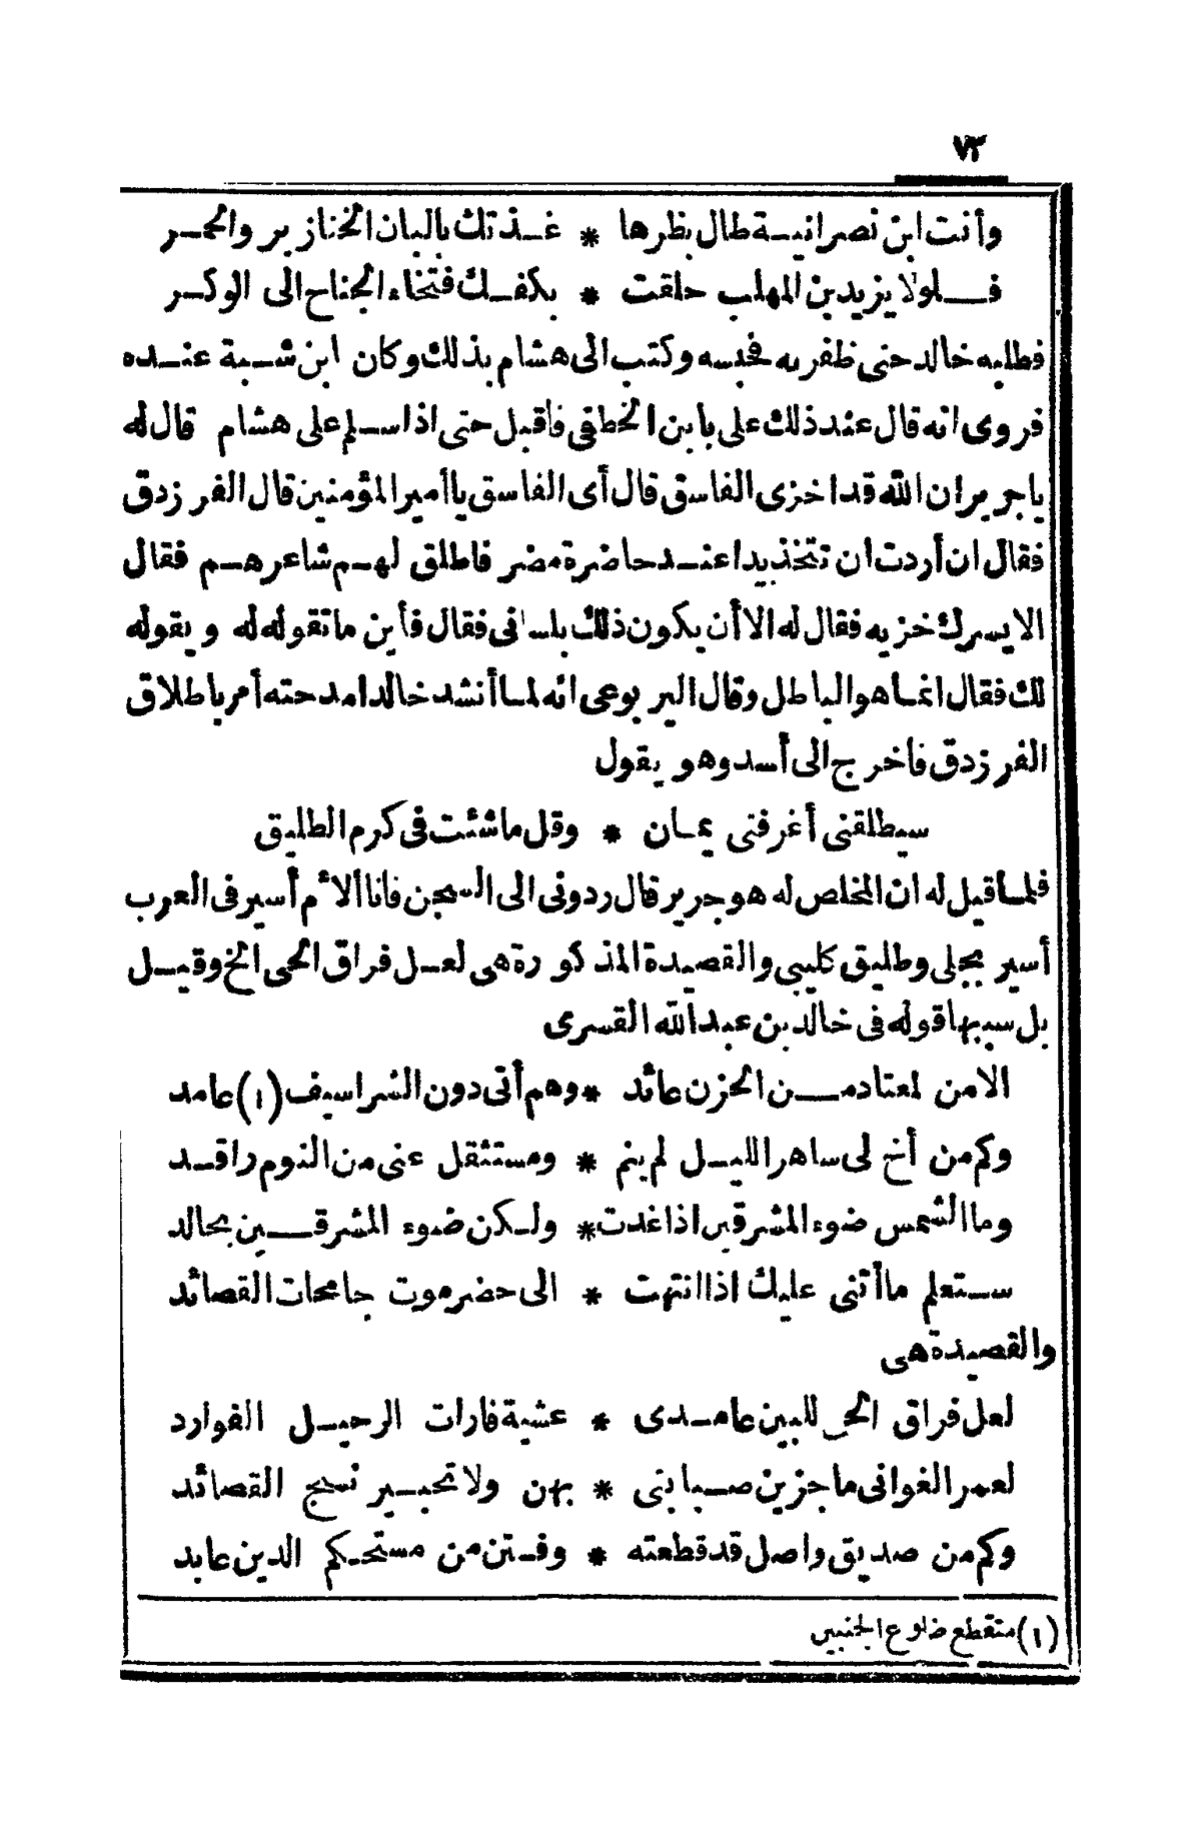 ٧٣
وأنت ابن نصرانيـة طال بظرها * غـذتك بالبان الخنازير والخمـر
فـلولا يزيد بن المهلب حلقت * بكفـك فتخاء الجناح الى الوكـر
فطلبه خالد حتى ظفر به فحبسه وكتب الى هشام بذلك وكان ابن شـبة عنـده
فروى انه قال عند ذلك على بابن الخطفى فاقبل حتى اذا سـلم على هشام قال له
ياجرير ان الله قد اخزى الفاسق قال أى الفاسق ياأمير المؤمنين قال الفرزدق
فقال ان أردت ان تتخذ يدا عنـد حاضرة مضر فاطلق لهـم شاعرهـم فقال
الا يسرك خزيه فقال له الا أن يكون ذلك بلسانى فقال فأين ماتقوله له ويقوله
لك فقال انمـا هو الباطل وقال اليربوعى انه لمـا أنشد خالدا مدحته أمر باطلاق
الفرزدق فاخرج الى أسد وهو يقول
سيطلقنى أغر فتى يمـان * وقل ماشئت فى كرم الطليق
فلمـا قيل له ان المخلص له هو جرير قال ردونى الى السجن فانا ألأم أسير فى العرب
أسير بجلى وطليق كليبى والقصيدة المذكورة هى لعـل فراق الحى الخ وقيـل
بل سببها قوله فى خالد بن عبد الله القسرى
الا من لمعتاد مـن الحزن عائد * وهم أتى دون الشراسيف (١) عامد
وكم من أخ لى ساهر الليـل لم ينم * ومستثقل عنى من النوم راقـد
وما الشمس ضوء المشرقين اذا غدت * ولـكن ضوء المشرقـين بخالد
سـتعلم ما أثنى عليك اذا انتهت * الى حضرموت جامحات القصائد
والقصيدة هى
لعل فراق الحى للبين عامـدى * عشية قارات الرحيـل الفوارد
لعمر الغوانى ماجزين صـبابتى * بهن ولا تحبـير نسج القصائد
وكم من صديق واصل قد قطعته * وفـتن من مستحـكم الدين عابد
(١) متقطع ضلوع الجنبين